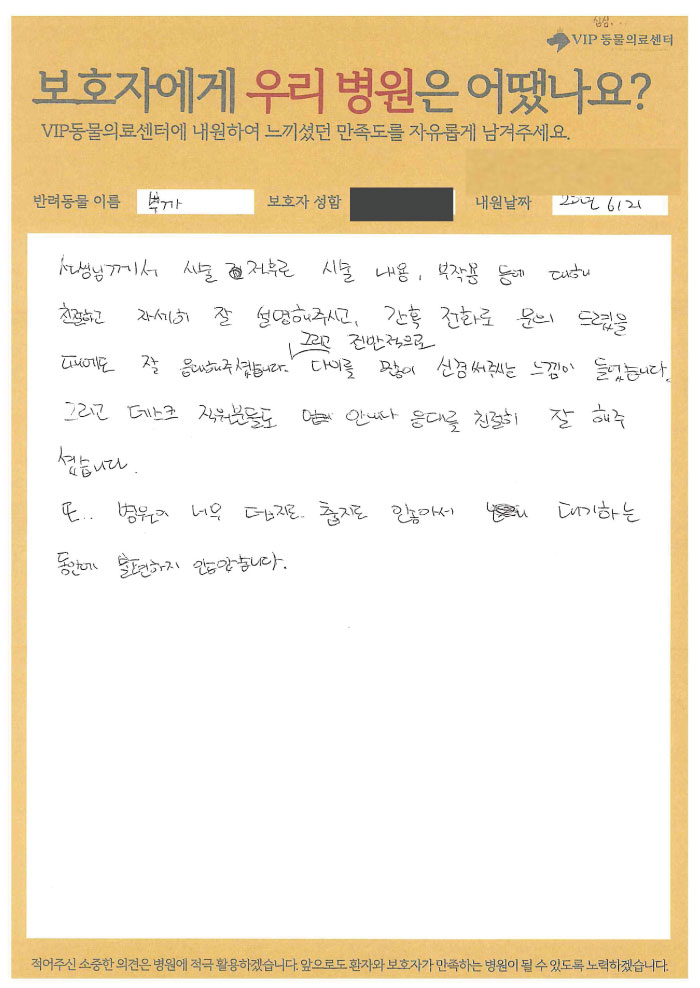 VIP 동물의료센터
보호자에게 우리 병원은 어땠나요?
VIP동물의료센터에 내원하여 느끼셨던 만족도를 자유롭게 남겨주세요.
반려동물 이름 보호자 성함 내원날짜 6/21
선생님께서 시술 전후로 시술 내용, 부작용 등에 대해
친절하고 자세히 잘 설명해주시고, 간혹 전화로 문의 드렸을
때에도 잘 응대해주셨습니다. 그리고 전반적으로 다이를 많이 신경써주시는 느낌이 들었습니다.
그리고 데스크 직원분들도 안내나 응대를 친절히 잘 해주
셨습니다.
또.. 병원이 너무 덥지도 춥지도 않아서 대기하는
동안에 불편하지 않았습니다.
적어주신 소중한 의견은 병원에 적극 활용하겠습니다. 앞으로도 환자와 보호자가 만족하는 병원이 될 수 있도록 노력하겠습니다.